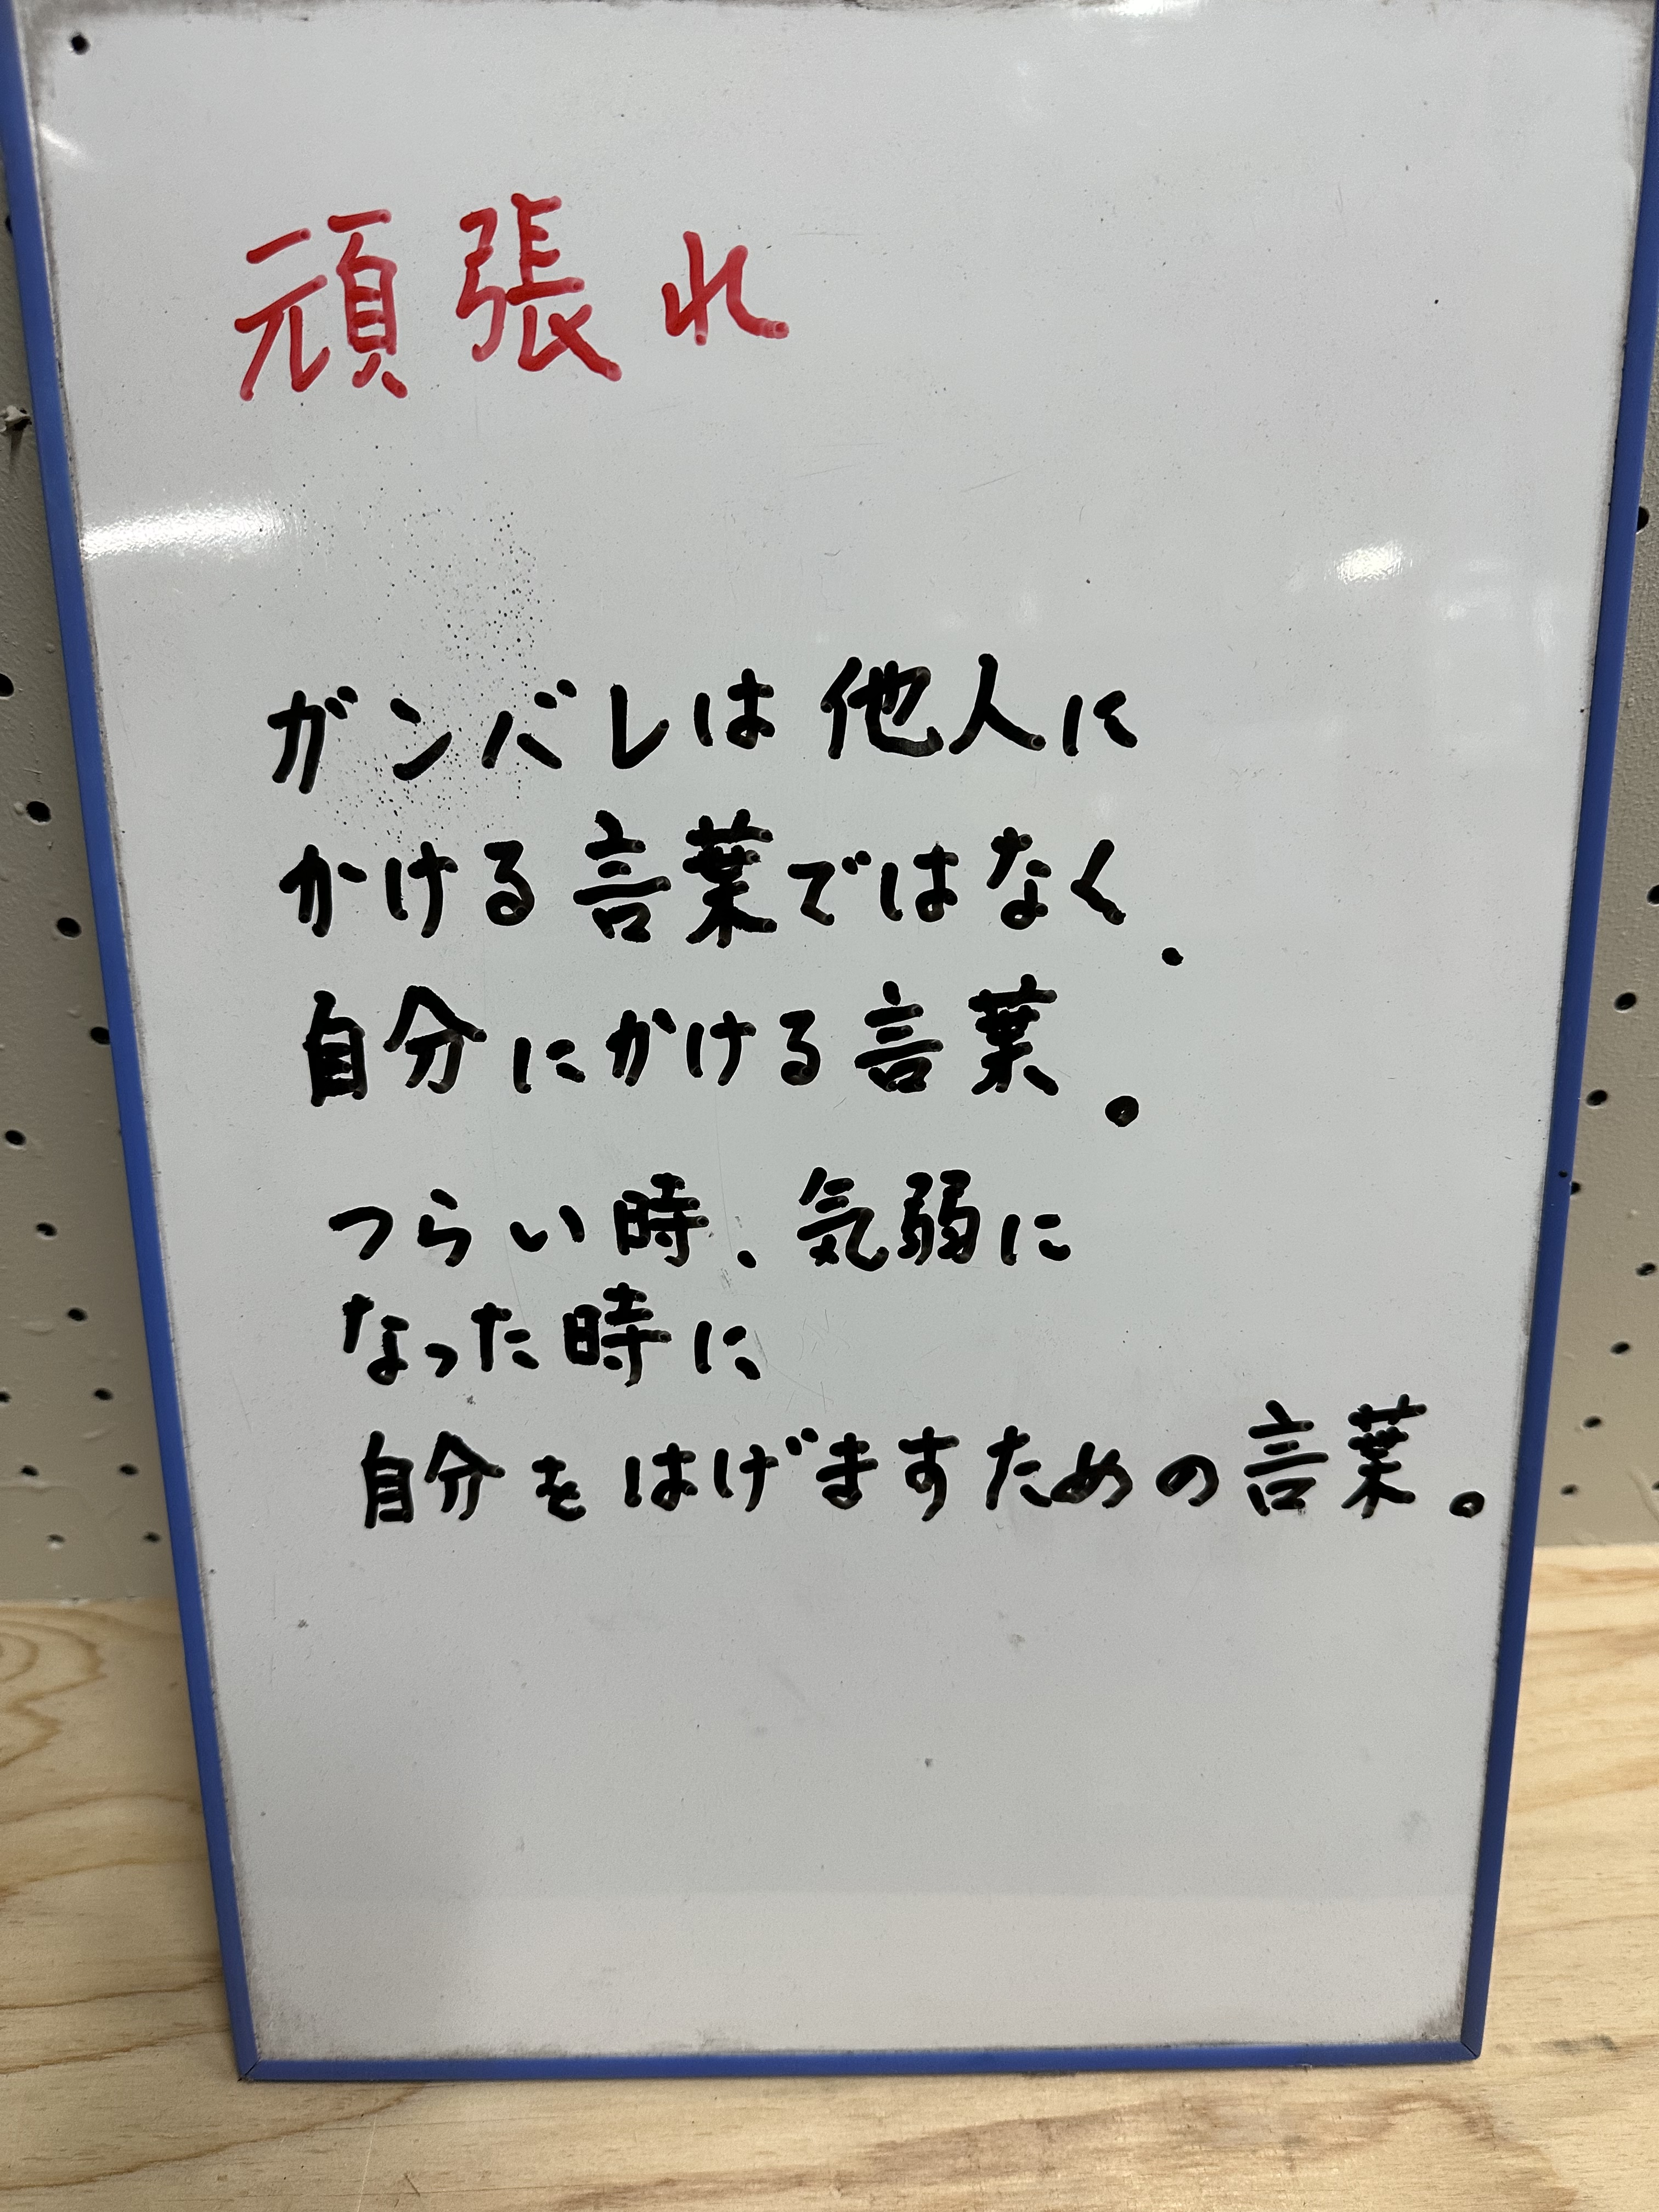 頑張れ
ガンバレは他人に
かける言葉ではなく、
自分にかける言葉。
つらい時、気弱に
なった時に
自分をはげますための言葉。